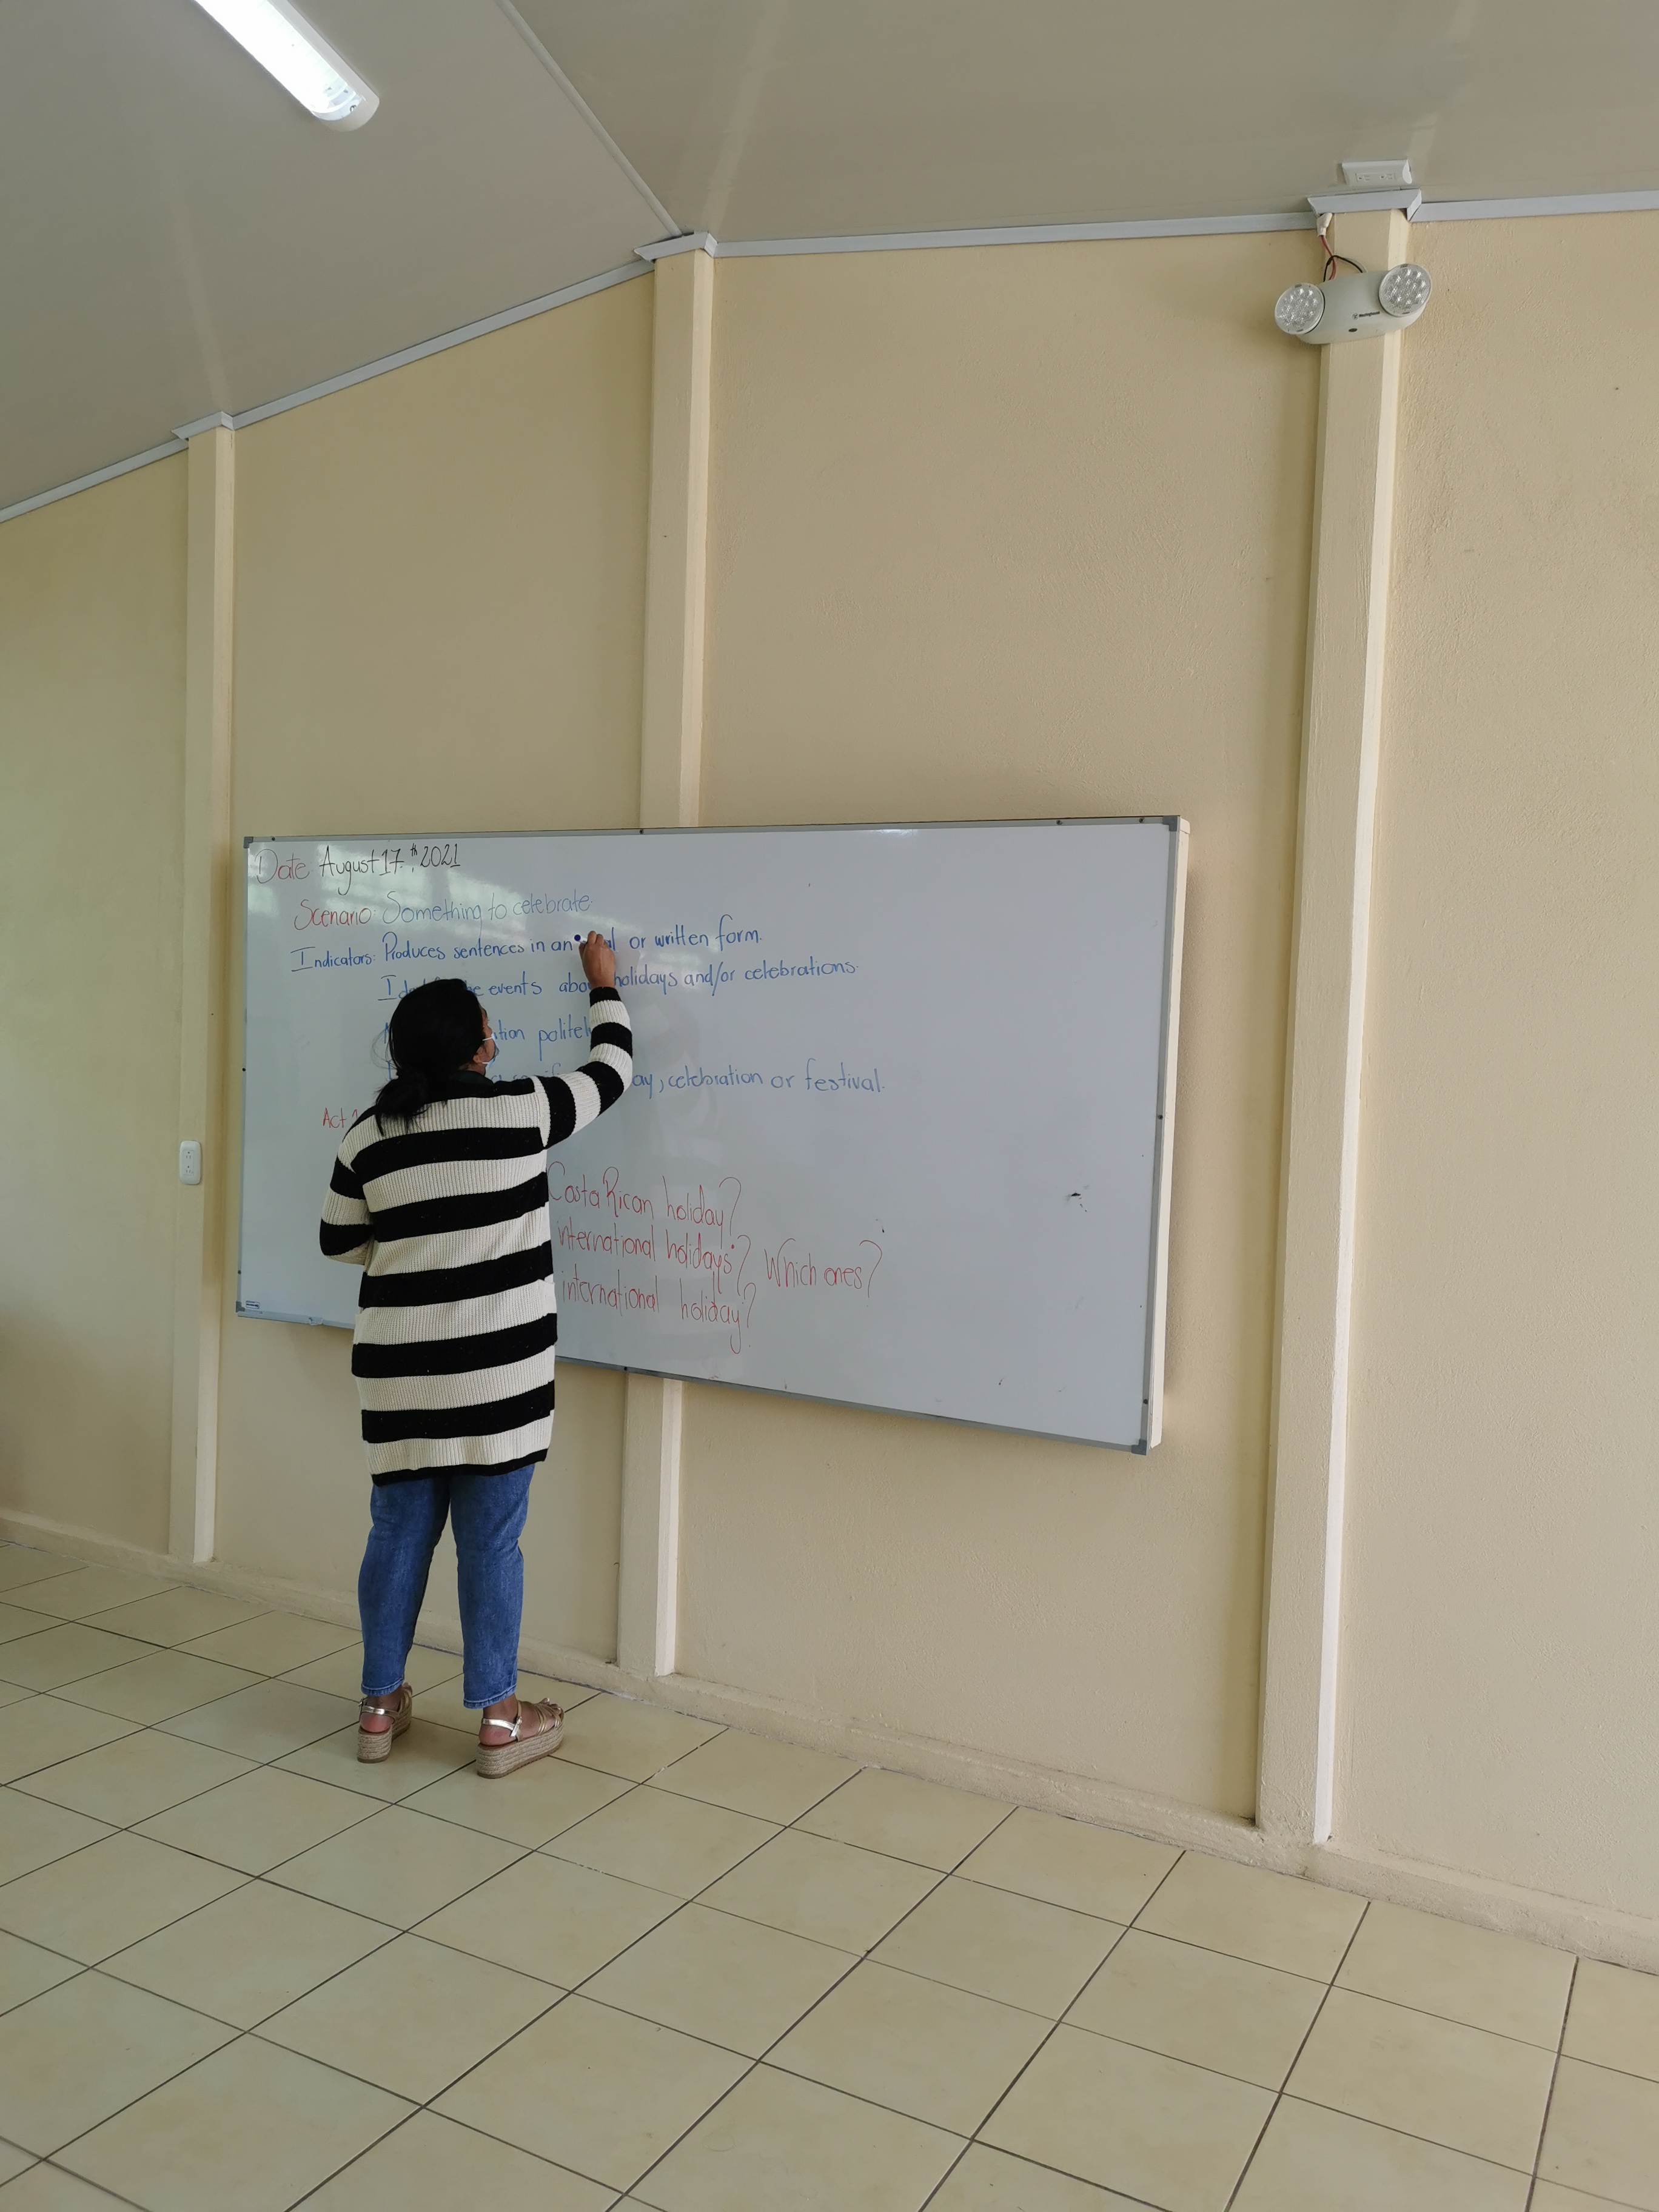 Date August 17th, 2021
Scenario: Something to celebrate.
Indicators: Produces sentences in an or written form.
the events about holidays and/or celebrations.
politely
celebration or festival.
Act
Costa Rican holiday?
international holidays? Which ones?
international holiday?